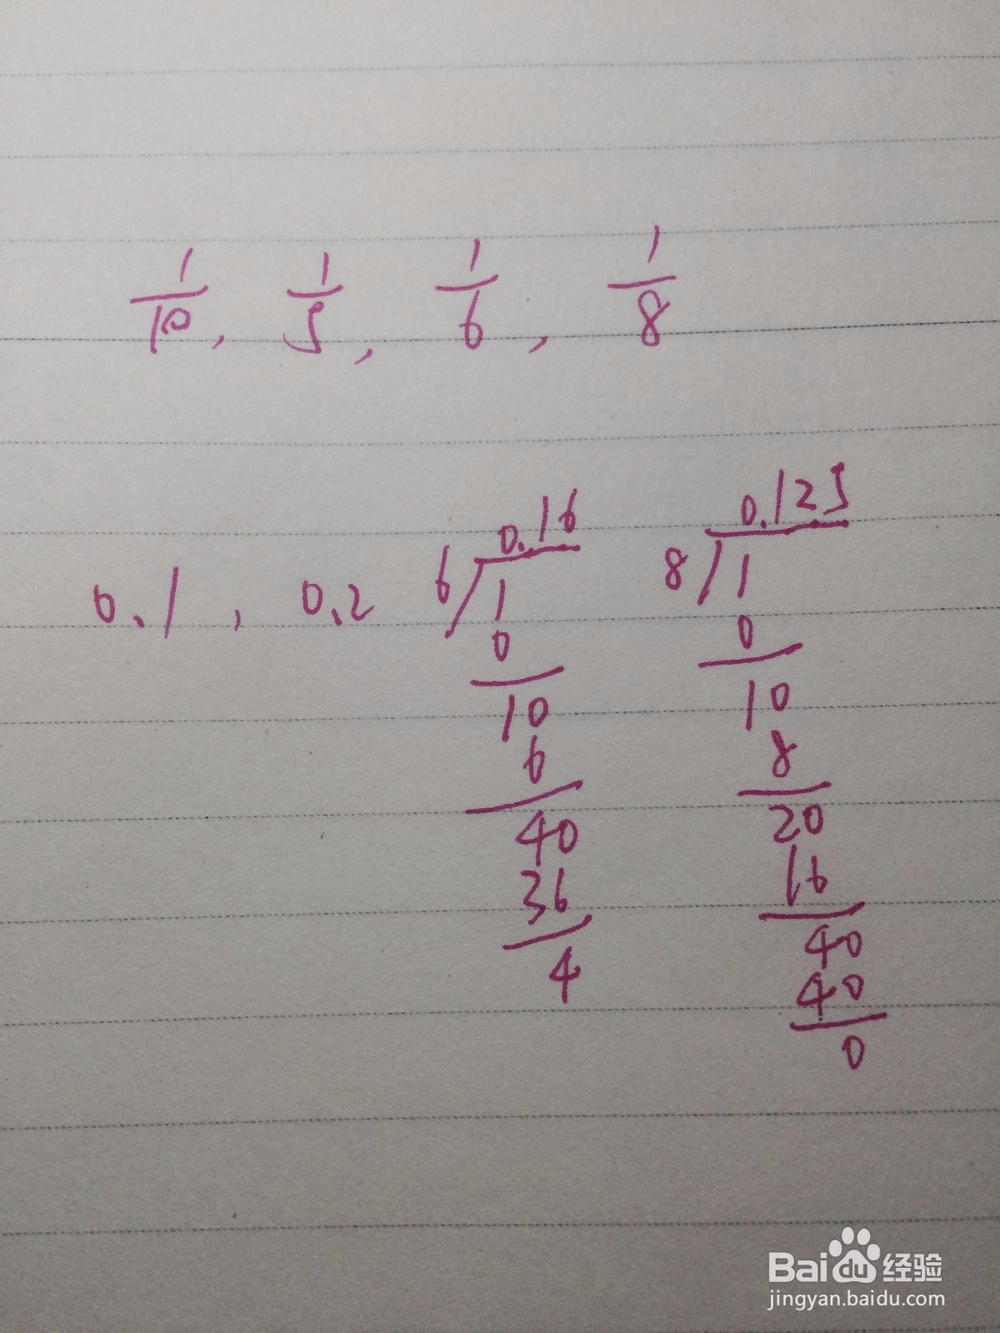 1/10, 1/5, 1/6, 1/8
0.16 0.125
0.1, 0.2 6 1 8 1
0 0
10 10
6 8
40 20
36 16
4 40
40
0
Baidu 经验
jingyan.baidu.com